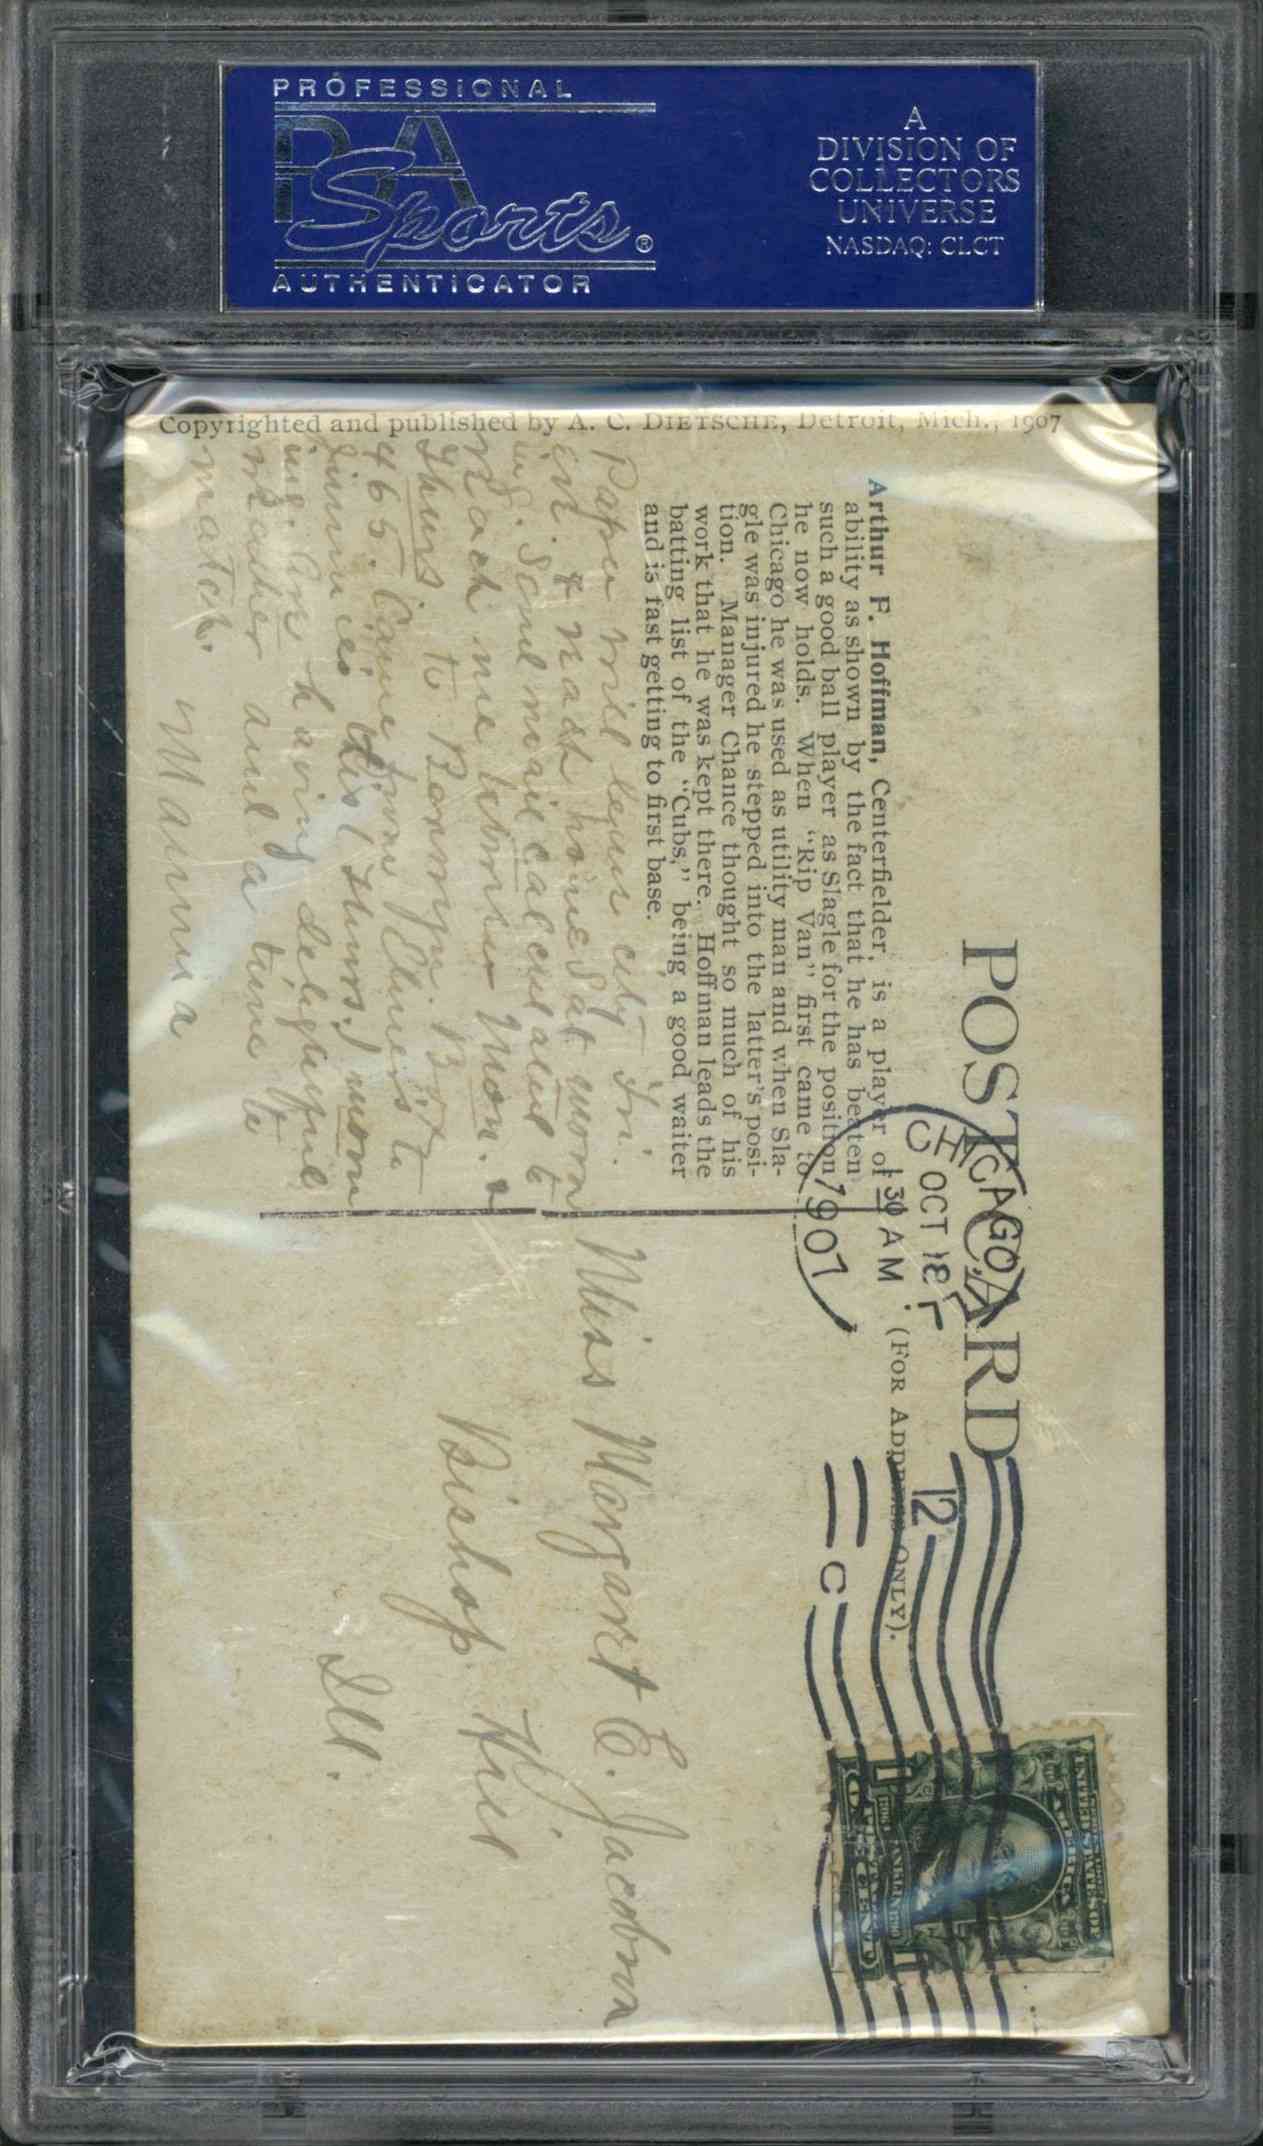 PROFESSIONAL
PSA
Sports®
AUTHENTICATOR
A
DIVISION OF
COLLECTORS
UNIVERSE
NASDAQ: CLCT
Copyrighted and published by A. C. DIETSCHE, Detroit, Mich., 1907
POST CARD
(FOR ADDRESS ONLY).
CHICAGO,
OCT 18
1 30 AM
1907
12
C
UNITED STATES OF
AMERICA
FRANKLIN
ONE CENT
Arthur F. Hoffman, Centerfielder, is a player of
ability as shown by the fact that he has beaten
such a good ball player as Slagle for the position
he now holds. When "Rip Van" first came to
Chicago he was used as utility man and when Sla-
gle was injured he stepped into the latter's posi-
tion. Manager Chance thought so much of his
work that he was kept there. Hoffman leads the
batting list of the "Cubs," being a good waiter
and is fast getting to first base.
Papa will leave city Fri.
& reach home Sat morn
ing. Send mail calculated to
reach me between Mon. &
Thurs to
465. Came from to
this (Thurs.) morn
ing. Am having delightful
weather and a time to
match.
Mama
Miss Margaret E. Jacobson
Bishop Hill
Ill.